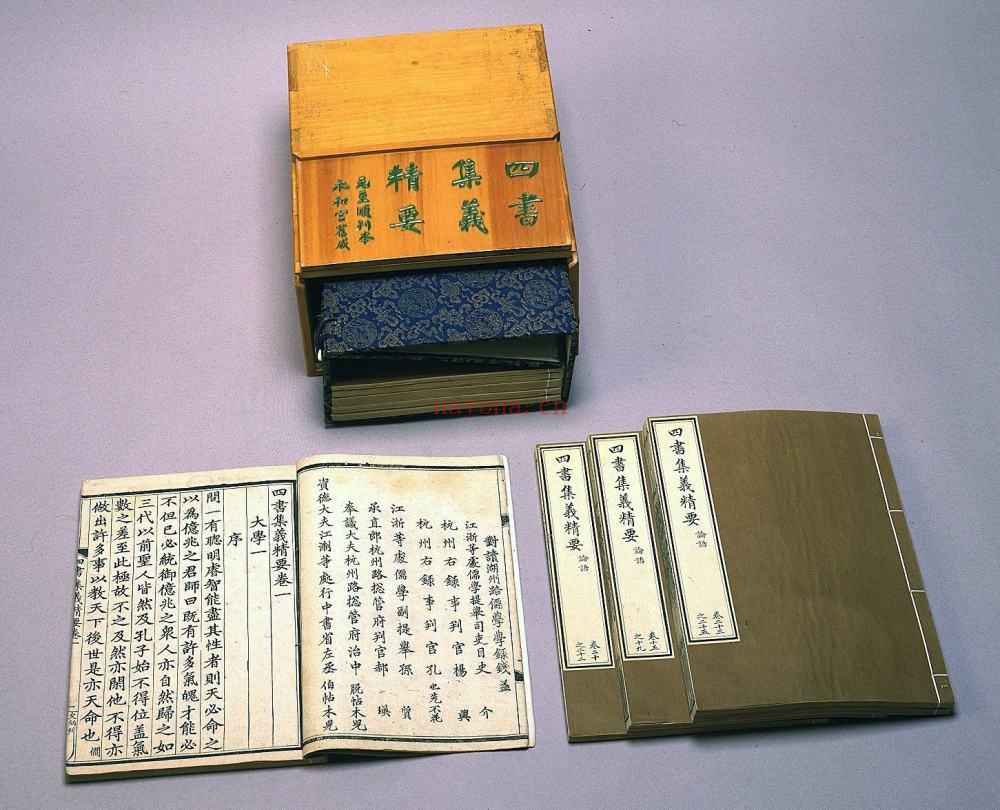 四書
集義
精要
元至順刊本
永和宮舊藏
nayona.cn
對讀湖州路儒學學錄錢益
江浙等處儒學提舉司吏目史介
杭州右錄事判官楊興
杭州右錄事判官孔也先不花
江浙等處儒學副提舉孫質
承直郎杭州路總管府判官郝瑛
奉議大夫杭州路總管府治中脫帖木兒
資德大夫江浙等處行中書省左丞伯帖木兒
四書集義精要卷一
大學一
序
問一有聰明睿智能盡其性者則天必命之
以為億兆之君師曰既有許多氣魄才能必
不但已必統御億兆之衆人亦自然歸之如
三代以前聖人皆然及孔子始不得位蓋氣
數之差至此極故不之及然亦閑他不得亦
做出許多事以教天下後世是亦天命也僩
四書集義精要卷一
四書集義精要 論語
卷二十
之二十二
四書集義精要 論語
卷十五
之十九
四書集義精要 論語
卷二十三
之二十五